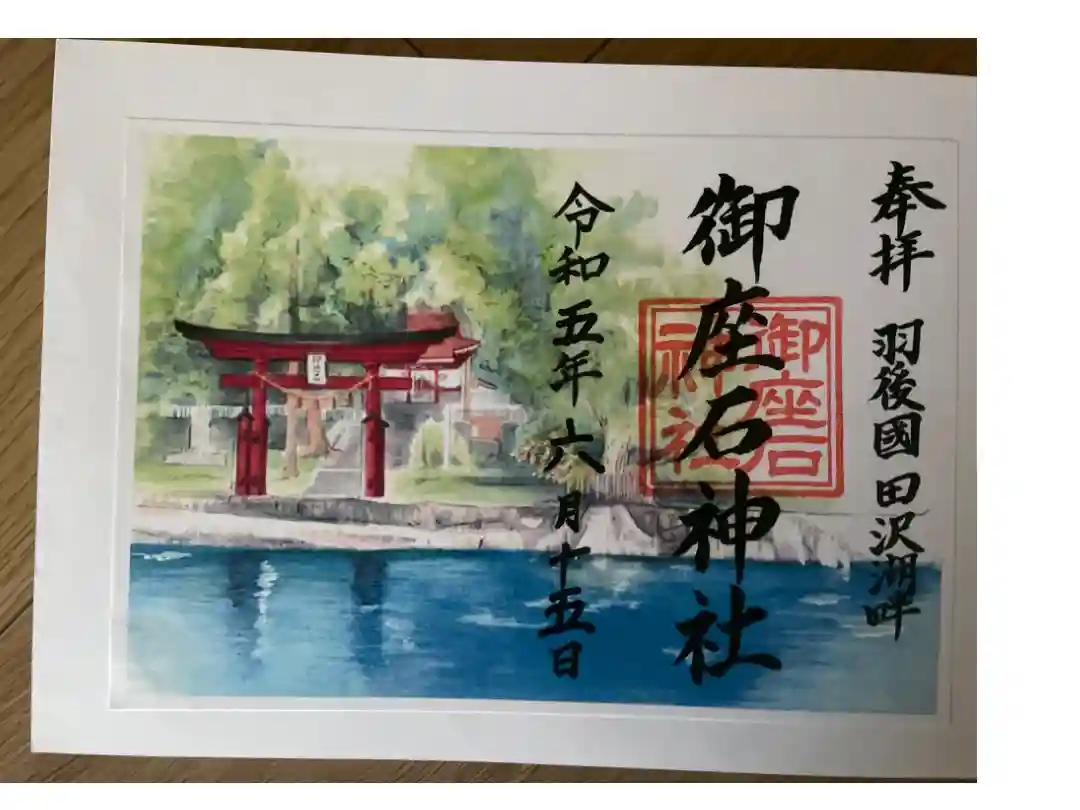 奉拝 羽後國田沢湖畔
御座石神社
御座石
神社
令和五年六月十五日
御座石